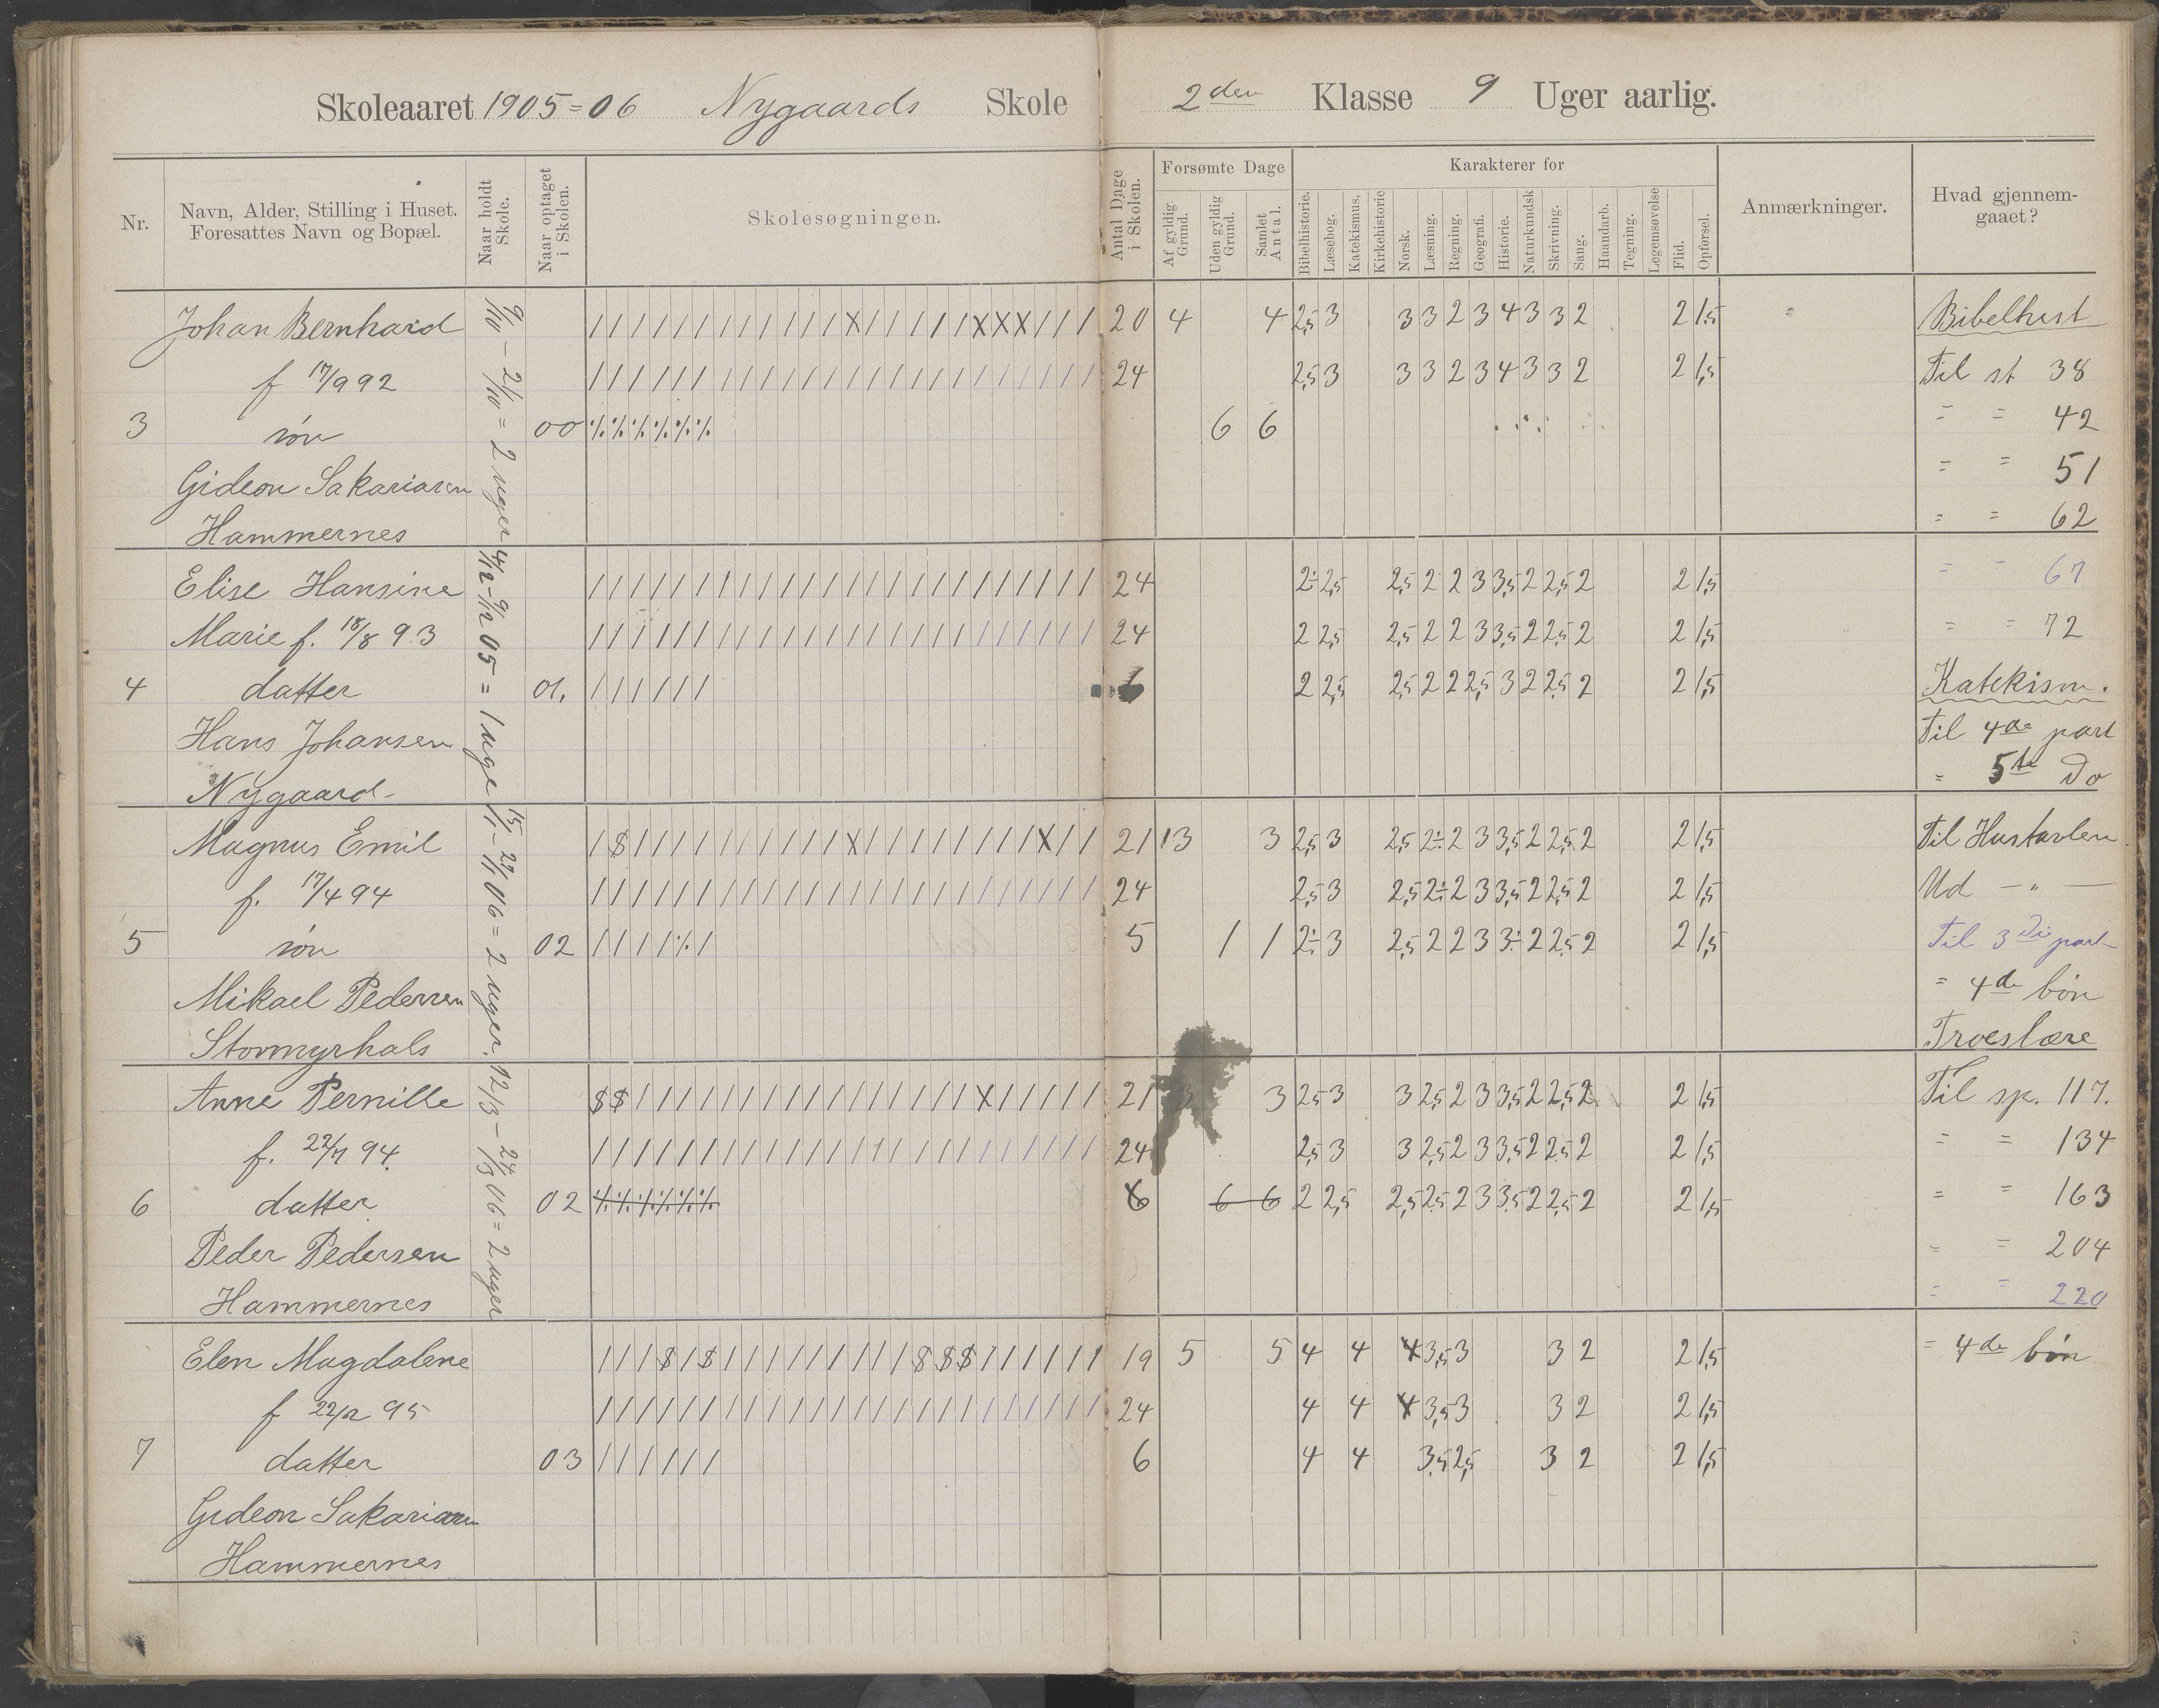 Skoleaaret 1905=06 Nygaards Skole 2den Klasse 9 Uger aarlig.
Nr.
Navn, Alder, Stilling i Huset.
Foresattes Navn og Bopæl.
Naar holdt
Skole.
Naar optaget
i Skolen.
Skolesøgningen.
Antal Dage
i Skolen.
Forsømte Dage
Af gyldig
Grund.
Uden gyldig
Grund.
Samlet
Antal.
Karakterer for
Bibelhistorie.
Læsebog.
Katekismus.
Kirkehistorie
Norsk.
Læsning.
Regning.
Geografi.
Historie.
Naturkundsk
Skrivning.
Sang.
Haandarb.
Tegning.
Legemsøvelse
Flid.
Opførsel.
Anmærkninger.
Hvad gjennem-
gaaet?
9/10 - 21/10 = 2 uger 4/12 - 9/12 05 = 1 uge 15/1 - 27/1 06 = 2 uger. 12/3 - 24/3 06 = 2 uger
Johan Bernhard 20 4 4 2,5 3 3 3 2 3 4 3 3 2 2 1,5 Bibelhist
f 17/9 92 24 2,5 3 3 3 2 3 4 3 3 2 2 1,5 Til st 38
3 søn 00 6 6 = = 42
Gideon Sakariasen = = 51
Hammernes = = 62
Elise Hansine 24 2÷ 2,5 2,5 2 2 3 3,5 2 2,5 2 2 1,5 = = 67
Marie f. 18/8 93 24 2 2,5 2,5 2 2 3 3,5 2 2,5 2 2 1,5 = = 72
4 datter 01. 6 2 2,5 2,5 2 2 2,5 3 2 2,5 2 2 1,5 Katekism.
Hans Johansen Til 4de part
Nygaard - = 5te Do
Magnus Emil 21 3 3 2,5 3 2,5 2÷ 2 3 3,5 2 2,5 2 2 1,5 Til Hustavlen
f. 17/4 94 24 2,5 3 2,5 2÷ 2 3 3,5 2 2,5 2 2 1,5 Ud - " -
5 søn 02 5 1 1 2÷ 3 2,5 2 2 3 3÷ 2 2,5 2 2 1,5 Til 3die part
Mikael Pedersen = 4de bøn
Stormyrhals Troeslære
Anne Pernille 21 3 3 2,5 3 3 2,5 2 3 3,5 2 2,5 2 2 1,5 Til sp. 117.
f. 22/7 94. 24 2,5 3 3 2,5 2 3 3,5 2 2,5 2 2 1,5 = = 134
6 datter 02 6 6 6 2 2,5 2,5 2,5 2 3 3,5 2 2,5 2 2 1,5 = = 163
Peder Pedersen = = 204
Hammernes = = 220
Elen Magdalene 19 5 5 4 4 4 3,5 3 3 2 2 1,5 = 4de bøn
f 22/12 95 24 4 4 4 3,5 3 3 2 2 1,5
7 datter 03 6 4 4 3,5 2,5 3 2 2 1,5
Gideon Sakariasen
Hammernes